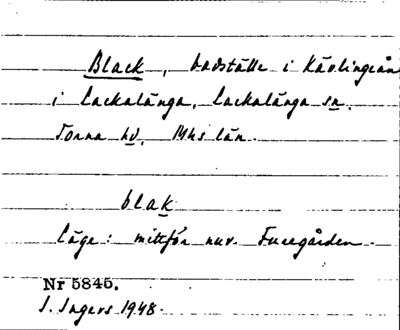 Black, badställe i Kävlingeån
i Lackalänga, Lackalänga sn.
Torna hd, Mhs län.
blak
Läge: mittför nuv. Furegården.
Nr 5845.
I. Ingers 1948.